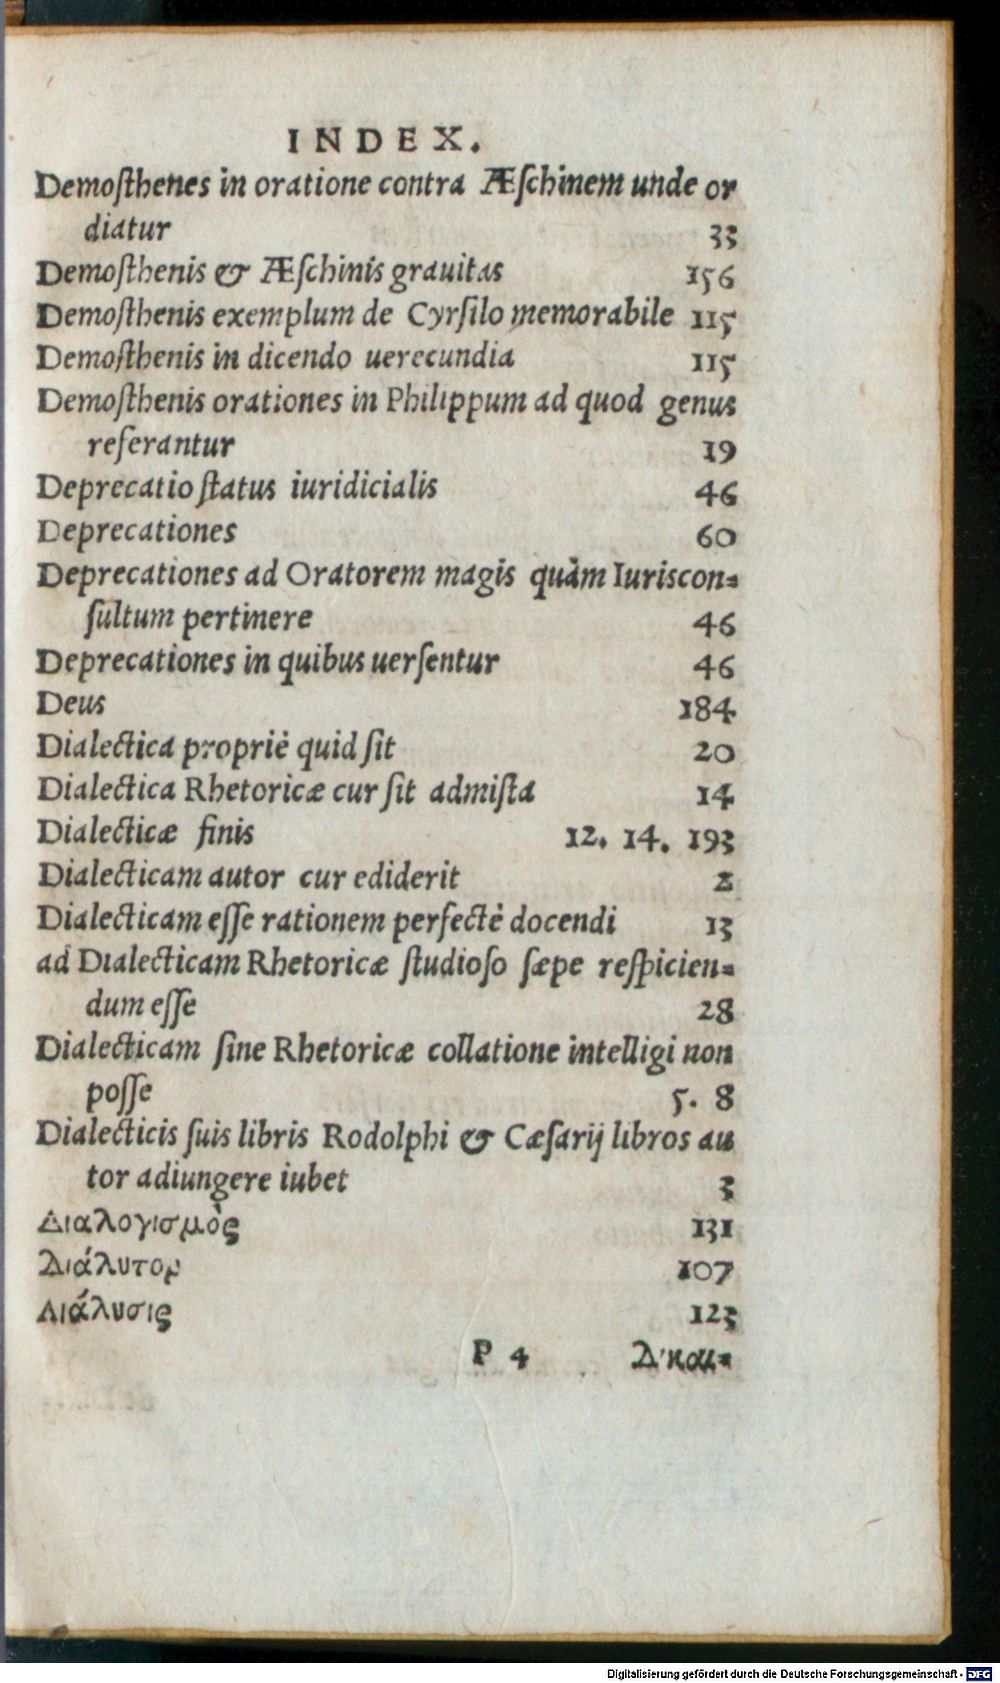 INDEX.
Demosthenes in oratione contra Æschinem unde or
diatur 33
Demosthenis & Æschinis grauitas 156
Demosthenis exemplum de Cyrsilo memorabile 115
Demosthenis in dicendo uerecundia 115
Demosthenis orationes in Philippum ad quod genus
referantur 19
Deprecatio status iuridicialis 46
Deprecationes 60
Deprecationes ad Oratorem magis quàm Iuriscon-
sultum pertinere 46
Deprecationes in quibus uersentur 46
Deus 184
Dialectica propriè quid sit 20
Dialectica Rhetoricæ cur sit admista 14
Dialecticæ finis 12. 14. 193
Dialecticam autor cur ediderit 2
Dialecticam esse rationem perfectè docendi 13
ad Dialecticam Rhetoricæ studioso sæpe respicien-
dum esse 28
Dialecticam sine Rhetoricæ collatione intelligi non
posse 5. 8
Dialecticis suis libris Rodolphi & Cæsarij libros au
tor adiungere iubet 3
Διαλογισμὸς 131
Διάλυτον 107
Διάλυσις 123
P 4 Δικαι-
Digitalisierung gefördert durch die Deutsche Forschungsgemeinschaft - DFG